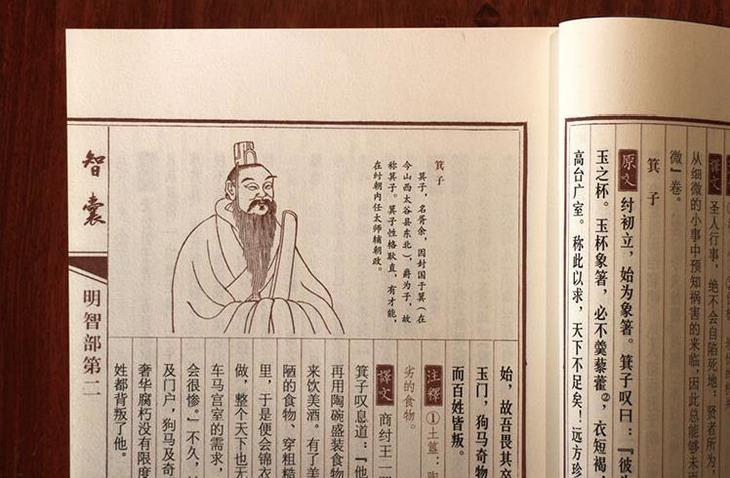 譯文 圣人行事，绝不会自陷死地；贤者所为，
从细微的小事中预知祸害的来临，因此总能够未
微』卷。
箕子
原文 纣初立，始为象箸。箕子叹曰：『彼
玉之杯。玉杯象箸，必不羹藜藿②，衣短褐，
高台广室。称此以求，天下不足矣！远方珍
箕子
箕子，名胥余，因封国于箕（在
今山西太谷县东北），爵为子，故
称箕子。箕子性格耿直，有才能，
在纣朝内任太师辅朝政。
始，故吾畏其卒
玉门，狗马奇物
而百姓皆叛。
注釋 ①土簋：陶
劣的食物。
譯文 商纣王一
箕子叹息道：『他
再用陶碗盛装食物
来饮美酒。有了美
陋的食物、穿粗糙
里，于是便会锦衣
做，整个天下也无
车马宫室的需求，
会很惨。』不久，
及门户，狗马及奇
奢华腐朽没有限度
姓都背叛了他。
智囊
明智部第二